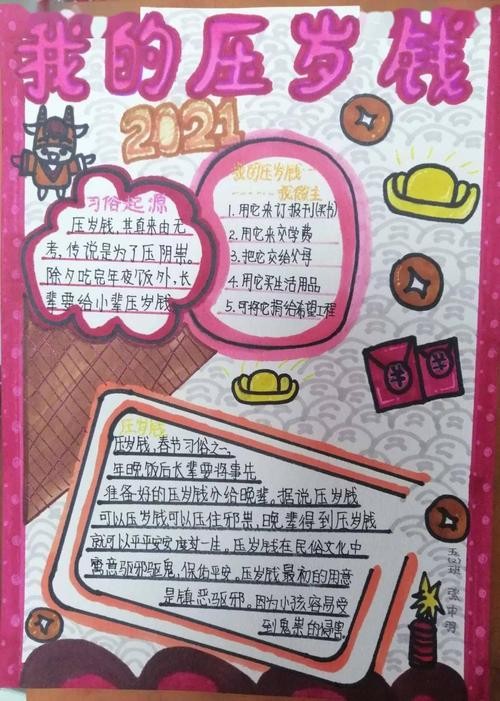 我的压岁钱
2021
习俗起源
压岁钱,其真来由无
考,传说是为了压阴祟。
除夕吃完年夜饭外,长
辈要给小辈压岁钱
我的压岁钱
我做主
1.用它来订报刊(买书)
2.用它来交学费
3.把它交给父母
4.用它买生活用品
5.可将它捐给希望工程
压岁钱
压岁钱,春节习俗之一,
年晚饭后长辈要将事先
准备好的压岁钱分给晚辈。据说压岁钱
可以压岁钱可以压住邪祟,晚辈得到压岁钱
就可以平平安安度过一生。压岁钱在民俗文化中
寓意驱邪驱鬼,保佑平安。压岁钱最初的用意
是镇恶驱邪。因为小孩容易受
到鬼祟的侵害